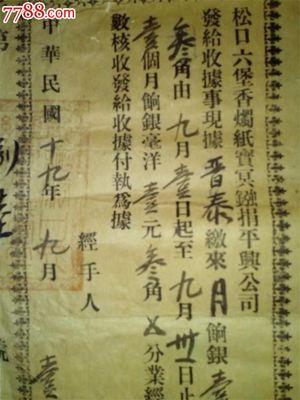 7788.com
松口六堡香燭紙寶冥鏹捐平興公司
發給收據事現據晋泰繳來月餉銀壹
叁角由九月壹日起至九月卅日止
壹個月餉銀毫洋壹元叁角五分業經
數核收發給收據付執爲據
經手人
中華民國十九年九月
壹
第
號